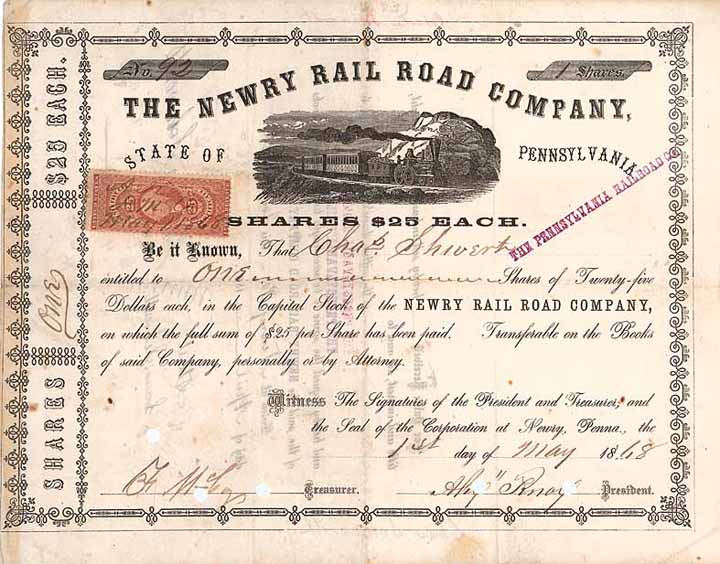 No. 92
1 Shares.
THE NEWRY RAIL ROAD COMPANY,
STATE OF PENNSYLVANIA
SHARES $25 EACH.
THE PENNSYLVANIA RAILROAD CO
Be it Known, That Chas. Shwerk
entitled to ONE Shares of Twenty-five
Dollars each, in the Capital Stock of the NEWRY RAIL ROAD COMPANY,
on which the full sum of $25 per Share has been paid. Transferable on the Books
of said Company, personally or by Attorney.
Witness The Signatures of the President and Treasurer, and
the Seal of the Corporation at Newry, Penna., the
1st day of May 1868
Treasurer.
President.
SHARES ONE $25 EACH.